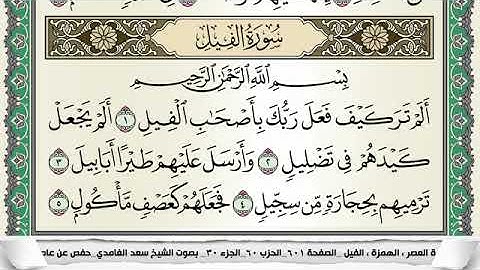 سُورَةُ الْفِيلِ
بِسْمِ اللَّهِ الرَّحْمَٰنِ الرَّحِيمِ
أَلَمْ تَرَ كَيْفَ فَعَلَ رَبُّكَ بِأَصْحَابِ الْفِيلِ ١ أَلَمْ يَجْعَلْ
كَيْدَهُمْ فِي تَضْلِيلٍ ٢ وَأَرْسَلَ عَلَيْهِمْ طَيْرًا أَبَابِيلَ ٣
تَرْمِيهِم بِحِجَارَةٍ مِّن سِجِّيلٍ ٤ فَجَعَلَهُمْ كَعَصْفٍ مَّأْكُولٍ ٥
العصر ، الهمزة ، الفيل _الصفحة ٦٠١_الحزب ٦٠_الجزء ٣٠_ بصوت الشيخ سعد الغامدي_حفص عن